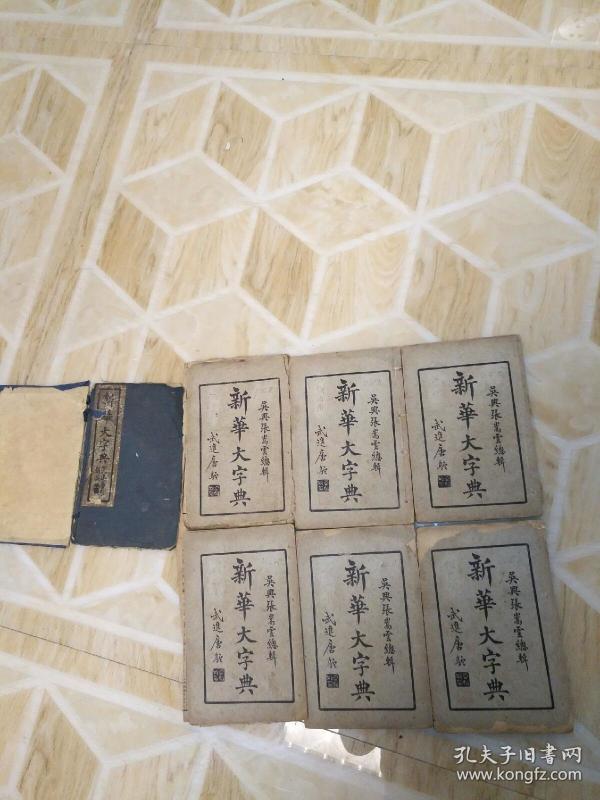 新華大字典
吳興張嵩雲總輯
新華大字典
武進唐駝
吳興張嵩雲總輯
新華大字典
武進唐駝
吳興張嵩雲總輯
新華大字典
武進唐駝
吳興張嵩雲總輯
新華大字典
武進唐駝
吳興張嵩雲總輯
新華大字典
武進唐駝
吳興張嵩雲總輯
新華大字典
武進唐駝
孔夫子旧书网
www.kongfz.com